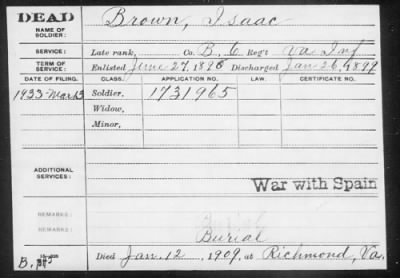 DEAD
NAME OF SOLDIER: Brown, Isaac
SERVICE: Late rank, Co. B, 6 Reg't Va Inf
TERM OF SERVICE: Enlisted June 27, 1898 Discharged Jan 26, 1899
DATE OF FILING. CLASS. APPLICATION NO. CERTIFICATE NO.
1933-Mar 3 Soldier, 1731965
Widow,
Minor,
ADDITIONAL SERVICES:
War with Spain
REMARKS:
REMARKS: Burial
B.
Died Jan. 12 1909, at Richmond, Va.